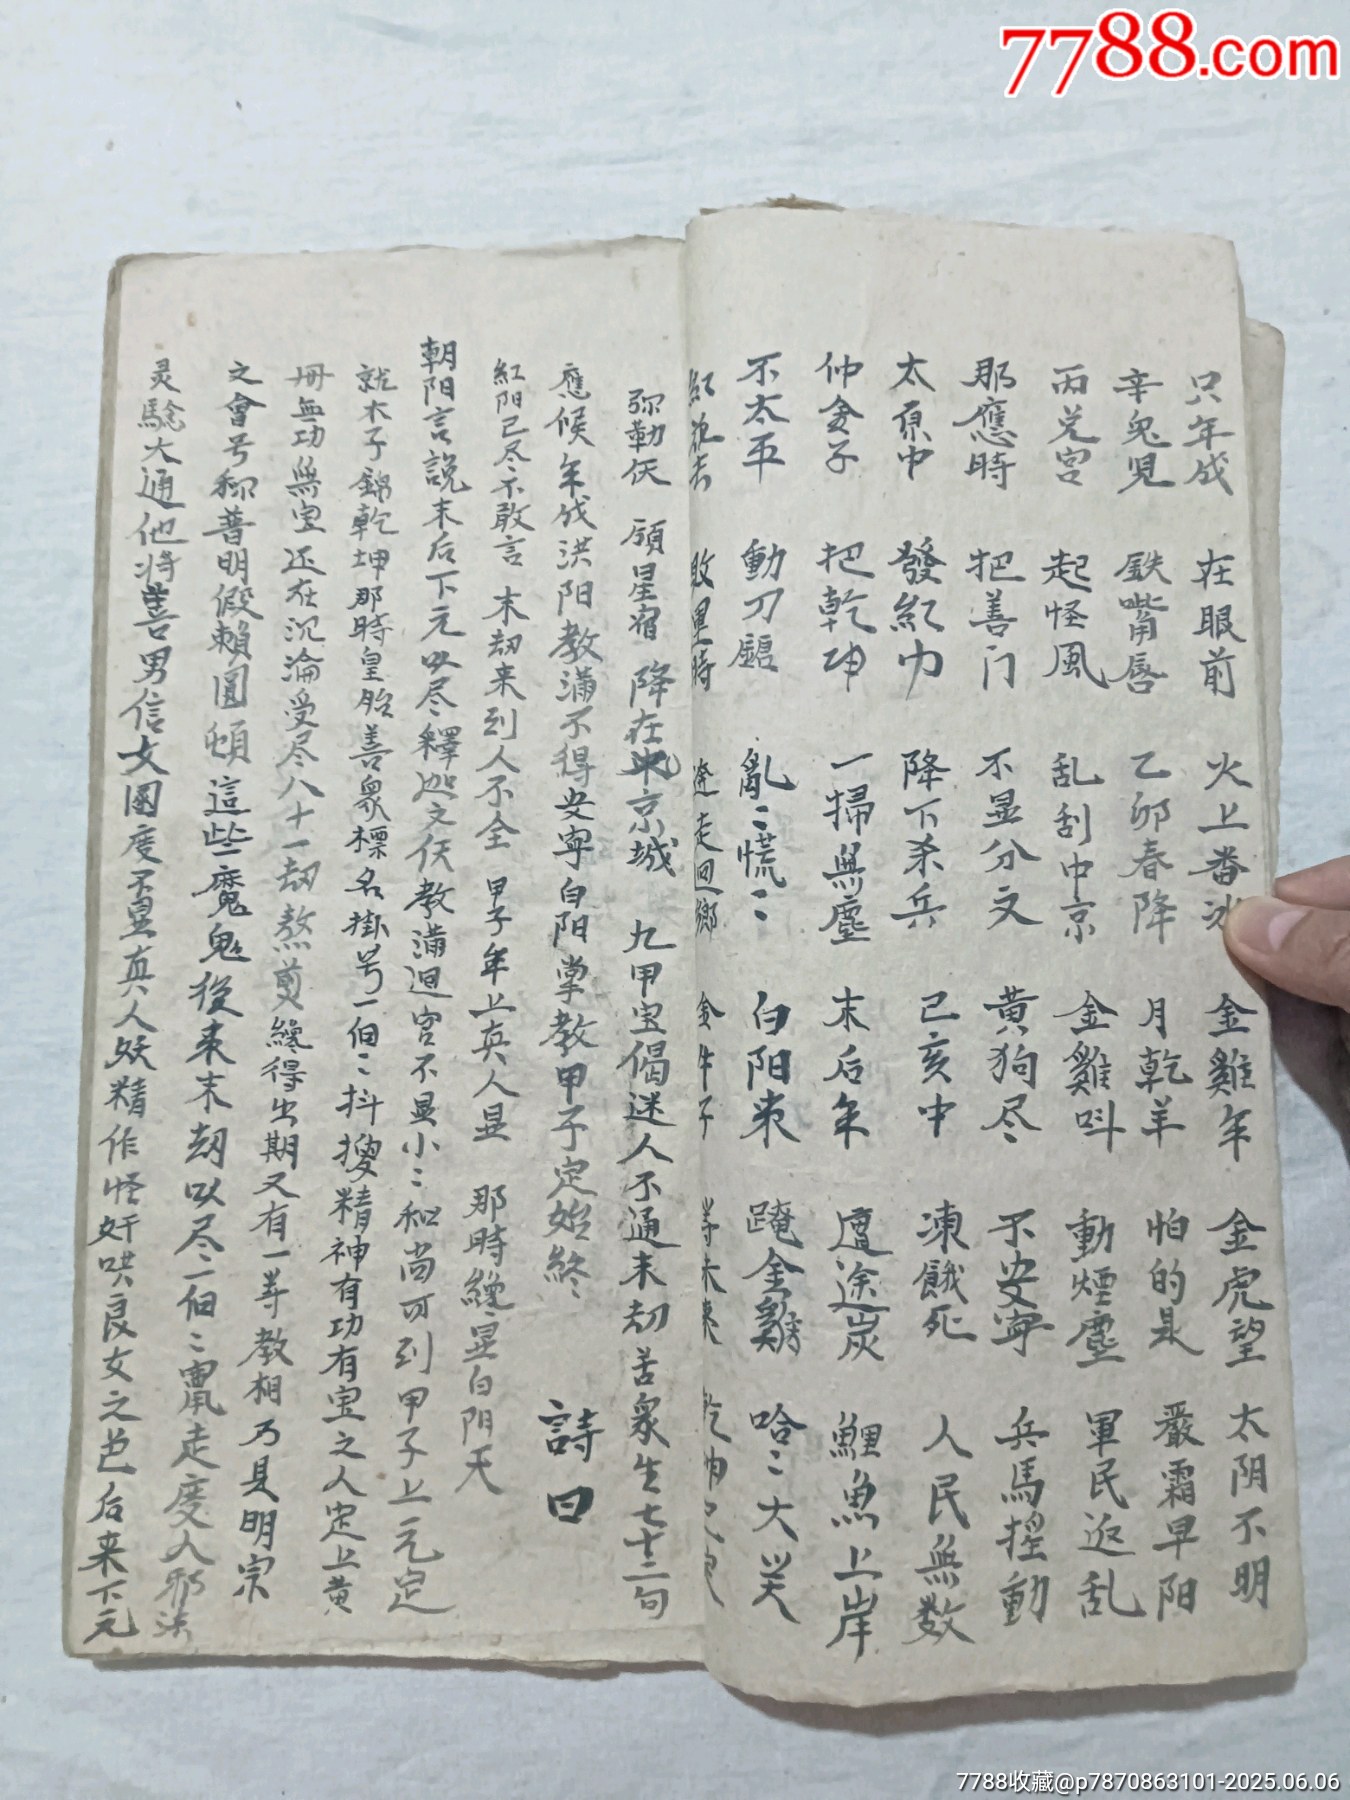 7788.com
只年成 在眼前 火上番冰 金雞年 金虎望 太阴不明
辛鬼見 鉄嘴唇 乙卯春降 月乾羊 怕的是 嚴霜早阳
丙兑宮 起怪風 乱刮中京 金雞呌 動煙塵 軍民返乱
那應時 把善门 不显分文 黄狗尽 不安寧 兵馬摇動
太原中 發紅巾 降下杀兵 己亥中 凍餓死 人民無数
仲金子 把乾坤 一掃無塵 末后年 遭途炭 鯉魚上岸
不太平 動刀鎗 亂〻慌〻 白阳来 跪金雞 哈〻大笑
敗運時 走回鄉 金牛子 等未来
弥勒仸 領星宿 降在京城 九甲宝偈迷人不通末刼 苦衆生七十二句
應候年成洪阳教滿不得安寧白阳掌教甲子定始終 詩曰
紅阳已尽不敢言 末刼来到人不全 甲子年上真人显 那時纔显白阳天
朝阳言說末后下元以尽釋迦文仸教滿迴宮不显小〻和尚可到甲子上元定
就木子錦乾坤那時皇胎善衆標名掛号一個〻抖搜精神有功有宝之人定上黄
册無功無宝还在沉淪受尽八十一刼熬煎纔得出期又有一等教相乃是明宗
文會号称普明假賴圓頓這些魔鬼後来末刼以尽一個〻鬼走度入邪法
灵驗大通他將善男信女圈度不显真人妖精作怪奸哄良女之色后来下元
7788收藏@p7870863101-2025.06.06